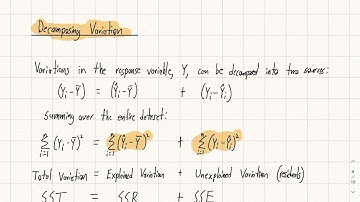 Decomposing Variation
Variations in the response variable, Y, can be decomposed into two sources:
(Yᵢ-Ȳ) = (Ŷᵢ-Ȳ) + (Yᵢ-Ŷᵢ)
Summing over the entire dataset:
n∑i=1 (Yᵢ-Ȳ)² = n∑i=1 (Ŷᵢ-Ȳ)² + n∑i=1 (Yᵢ-Ŷᵢ)²
Total Variation = Explained Variation + Unexplained Variation (residuals)
SST = SSR + SSE